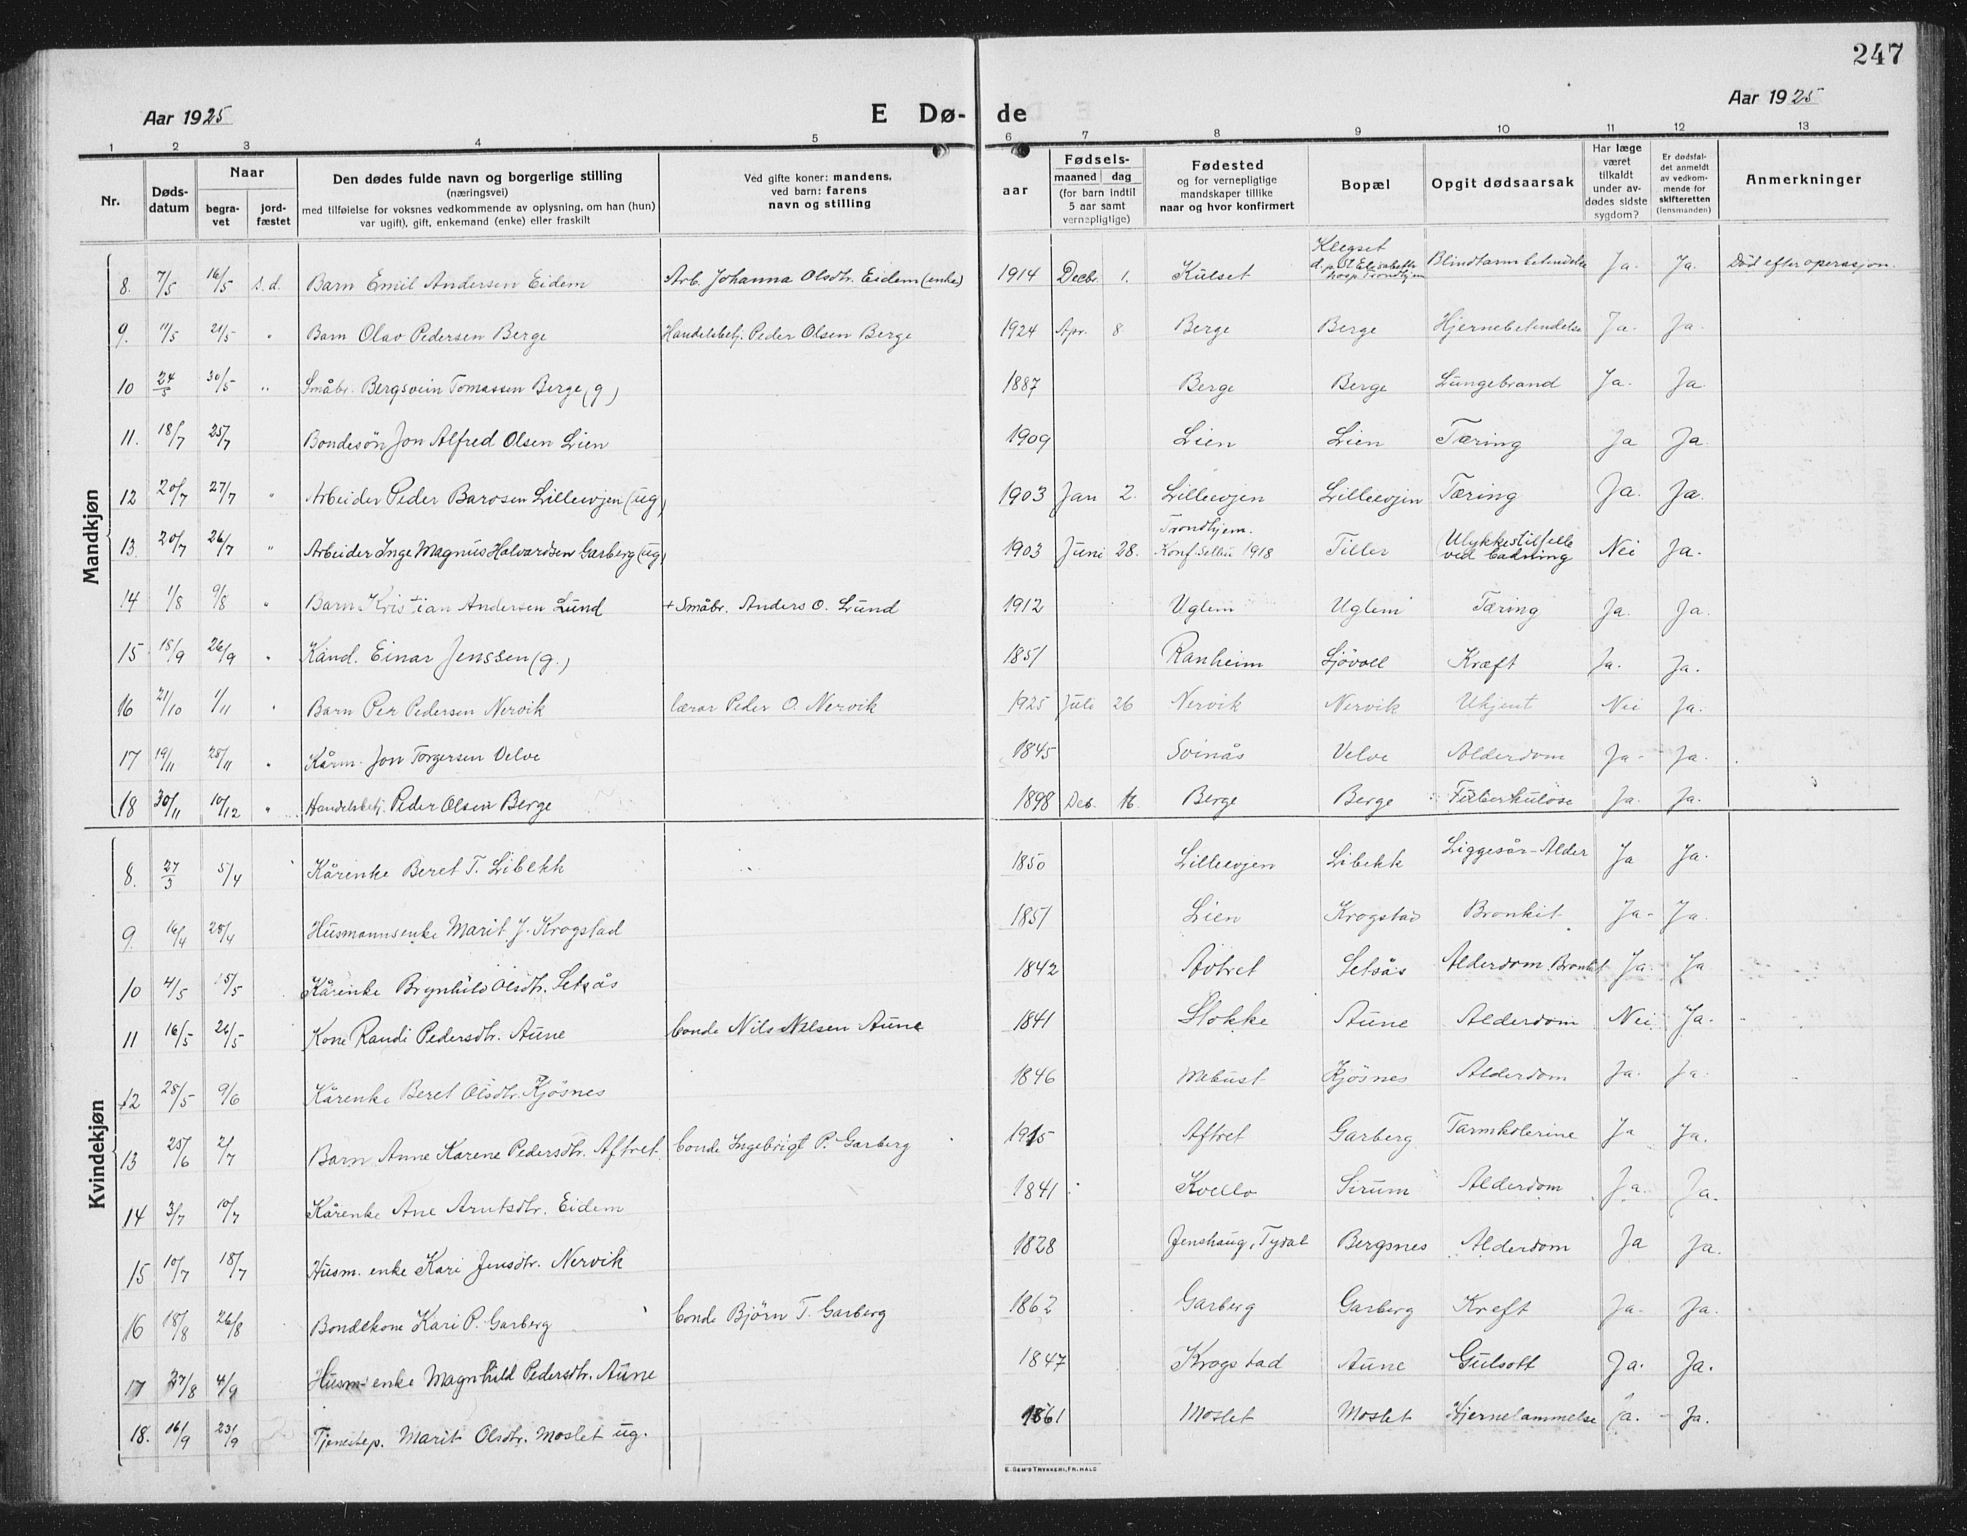 247
Aar 1925 E Dø- de Aar 1925
1 2 3 4 5 6 7 8 9 10 11 12 13
Nr. Døds-datum Naar begra-vet jord-fæstet Den dødes fulde navn og borgerlige stilling (næringsvei) med tilføielse for voksnes vedkommende av oplysning, om han (hun) var ugift), gift, enkemand (enke) eller fraskilt Ved gifte koner: mandens, ved barn: farens navn og stilling aar Fødsels- maaned dag (for barn indtil 5 aar samt vernepligtige) Fødested og for vernepligtige mandskaper tillike naar og hvor konfirmert Bopæl Opgit dødsaarsak Har læge været tilkaldt under av-dødes sidste sygdom? Er dødsfal-det anmeldt av vedkom-mende for skifteretten (lensmanden) Anmerkninger
Mandkjøn
8. 7/5 16/5 s.d. Barn Emil Andersen Eidem Arb. Johanna Olsdtr. Eidem (enke) 1914 Decbr. 1. Kulset Klegset d. p. St. Elisabeth hosp. Trondhjem Blindtarmbetendelse Ja. Ja. Død efter operasjon.
9. 11/5 21/5 " Barn Olav Pedersen Berge Handelsbetj. Peder Olsen Berge 1924 Apr. 8 Berge Berge Hjernebetendelse Ja. Ja.
10 24/5 30/5 " Småbr. Bergsvein Tomassen Berge (g) 1887 Berge Berge Lungebrand Ja. Ja.
11. 18/7 25/7 Bondesøn Jon Alfred Olsen Lien 1909 Lien Lien Tæring Ja Ja.
12 20/7 27/7 " Arbeider Peder Barosen Lilleevjen (ug) 1903 Jan 2. Lilleevjen Lilleevjen Tæring Ja. Ja.
13. 20/7 26/7 " Arbeider Inge Magnus Halvardsen Garberg (ug) 1903 Juni 28. Trondhjem. Konf. Selbu 1918 Tiller Ulykkestilfelle ved badning Nei Ja.
14 1/8 9/8 " Barn Kristian Andersen Lund + Småbr. Anders O. Lund 1912 Uglem Uglem Tæring Ja. Ja.
15 15/9 26/9 " Kand. Einar Jenssen (g.) 1851 Ranheim Sjøvoll Kræft Ja. Ja.
16 21/10 1/11 " Barn Per Pedersen Nervik lærar Peder O. Nervik 1925 Juli 26 Nervik Nervik Ukjent Nei Ja.
17 19/11 28/11 " Kårm. Jon Torgersen Velve 1845 Svinås Velve Alderdom Ja - Ja.
18 30/11 10/12 " Handelsbetj. Peder Olsen Berge 1898 Des. 16. Berge Berge Tuberkulose Ja. Ja.
Kvindekjøn
8. 27/3 5/4 Kårenke Beret T. Libekk 1850 Lilleevjen Libekk Liggesår - Alder Ja Ja.
9. 16/4 28/4 Husmannsenke Marit J. Krogstad 1851 Lien Krogstad Bronkit Ja - Ja.
10 4/5 15/5 Kårenke Brynhild Olsdtr. Setsås 1842 Setsås Alderdom, Bronkit Ja. Ja
11 16/5 26/5 Kone Randi Pedersdtr. Aune bonde Nils Nilsen Aune 1841 Slokke Aune Alderdom Nei Ja.
12 28/5 9/6 Kårenke Beret Olsdtr. Kjøsnes 1846 Mebust Kjøsnes Alderdom Ja. Ja.
13 25/6 2/7 Barn Anne Karene Pedersdtr. Aftret bonde Ingebrigt P. Garberg 1915 Aftret Garberg Tarmkolerine Ja Ja.
14 3/7 10/7 Kårenke Ane Arntsdtr. Eidem 1841 Kvello Sirum Alderdom Ja. Ja.
15 10/7 18/7 Husm. enke Kari Jensdtr. Nervik 1828 Jenshaug, Tydal Bergsnes Alderdom Ja Ja.
16 18/8 26/8 Bondekone Kari P. Garberg bonde Bjørn T. Garberg 1862 Garberg Garberg Kreft Ja. Ja.
17 27/8 4/9 Husm- enke Magnhild Pedersdtr. Aune 1847 Krogstad Aune Gulsott Ja. Ja.
18. 16/9 23/9 Tjenestep. Marit Olsdtr. Moslet ug. 1861 Moslet Moslet Hjernelammelse Ja. - Ja.
E. SEM'S TRYKKERI, FR.HALD